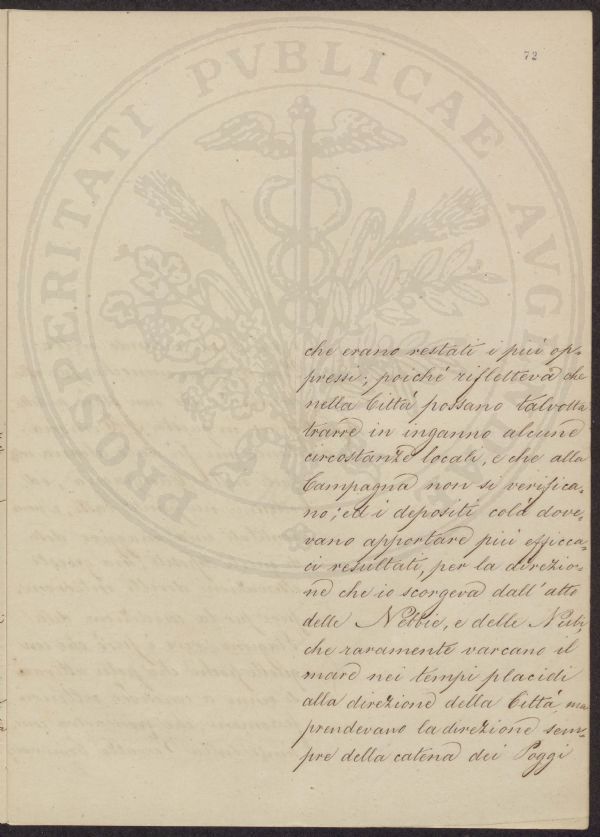 72
PROSPERITATI PVBLICAE AVGENDAE
che erano restati i più op=
pressi; poiché rifletteva che
nella Città possano talvolta
trarre in inganno alcune
circostanze locali, e che alla
Campagna non si verifica=
no; ed i depositi colà dove=
vano apportare più efficca=
ci resultati, per la direzio=
ne che io scorgeva dall'atto
delle Nebbie, e delle Nubi,
che raramente varcano il
mare nei tempi placidi
alla direzione della Città, ma
prendevano la direzione sem=
pre della catena dei Poggi